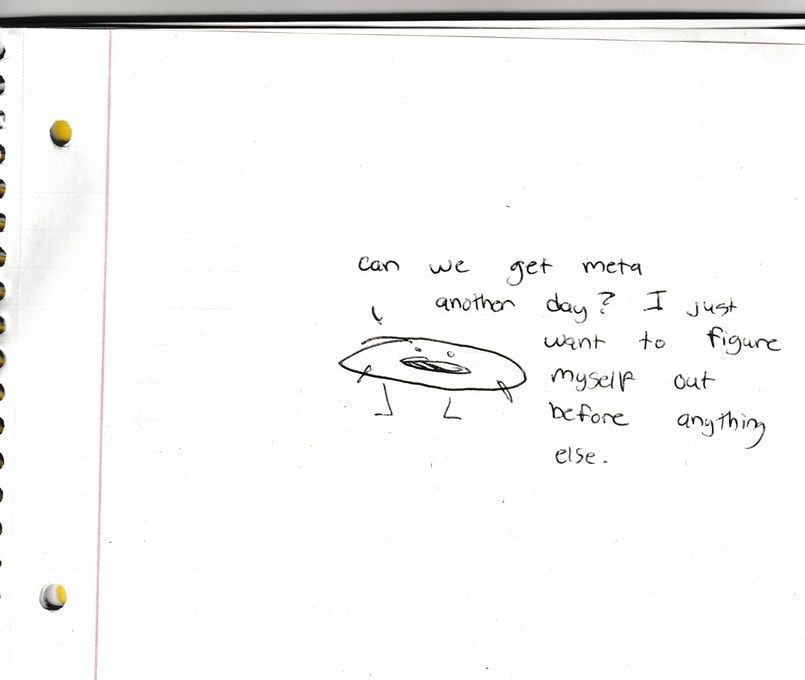 can we get meta
another day? I just
want to figure
myself out
before anything
else.